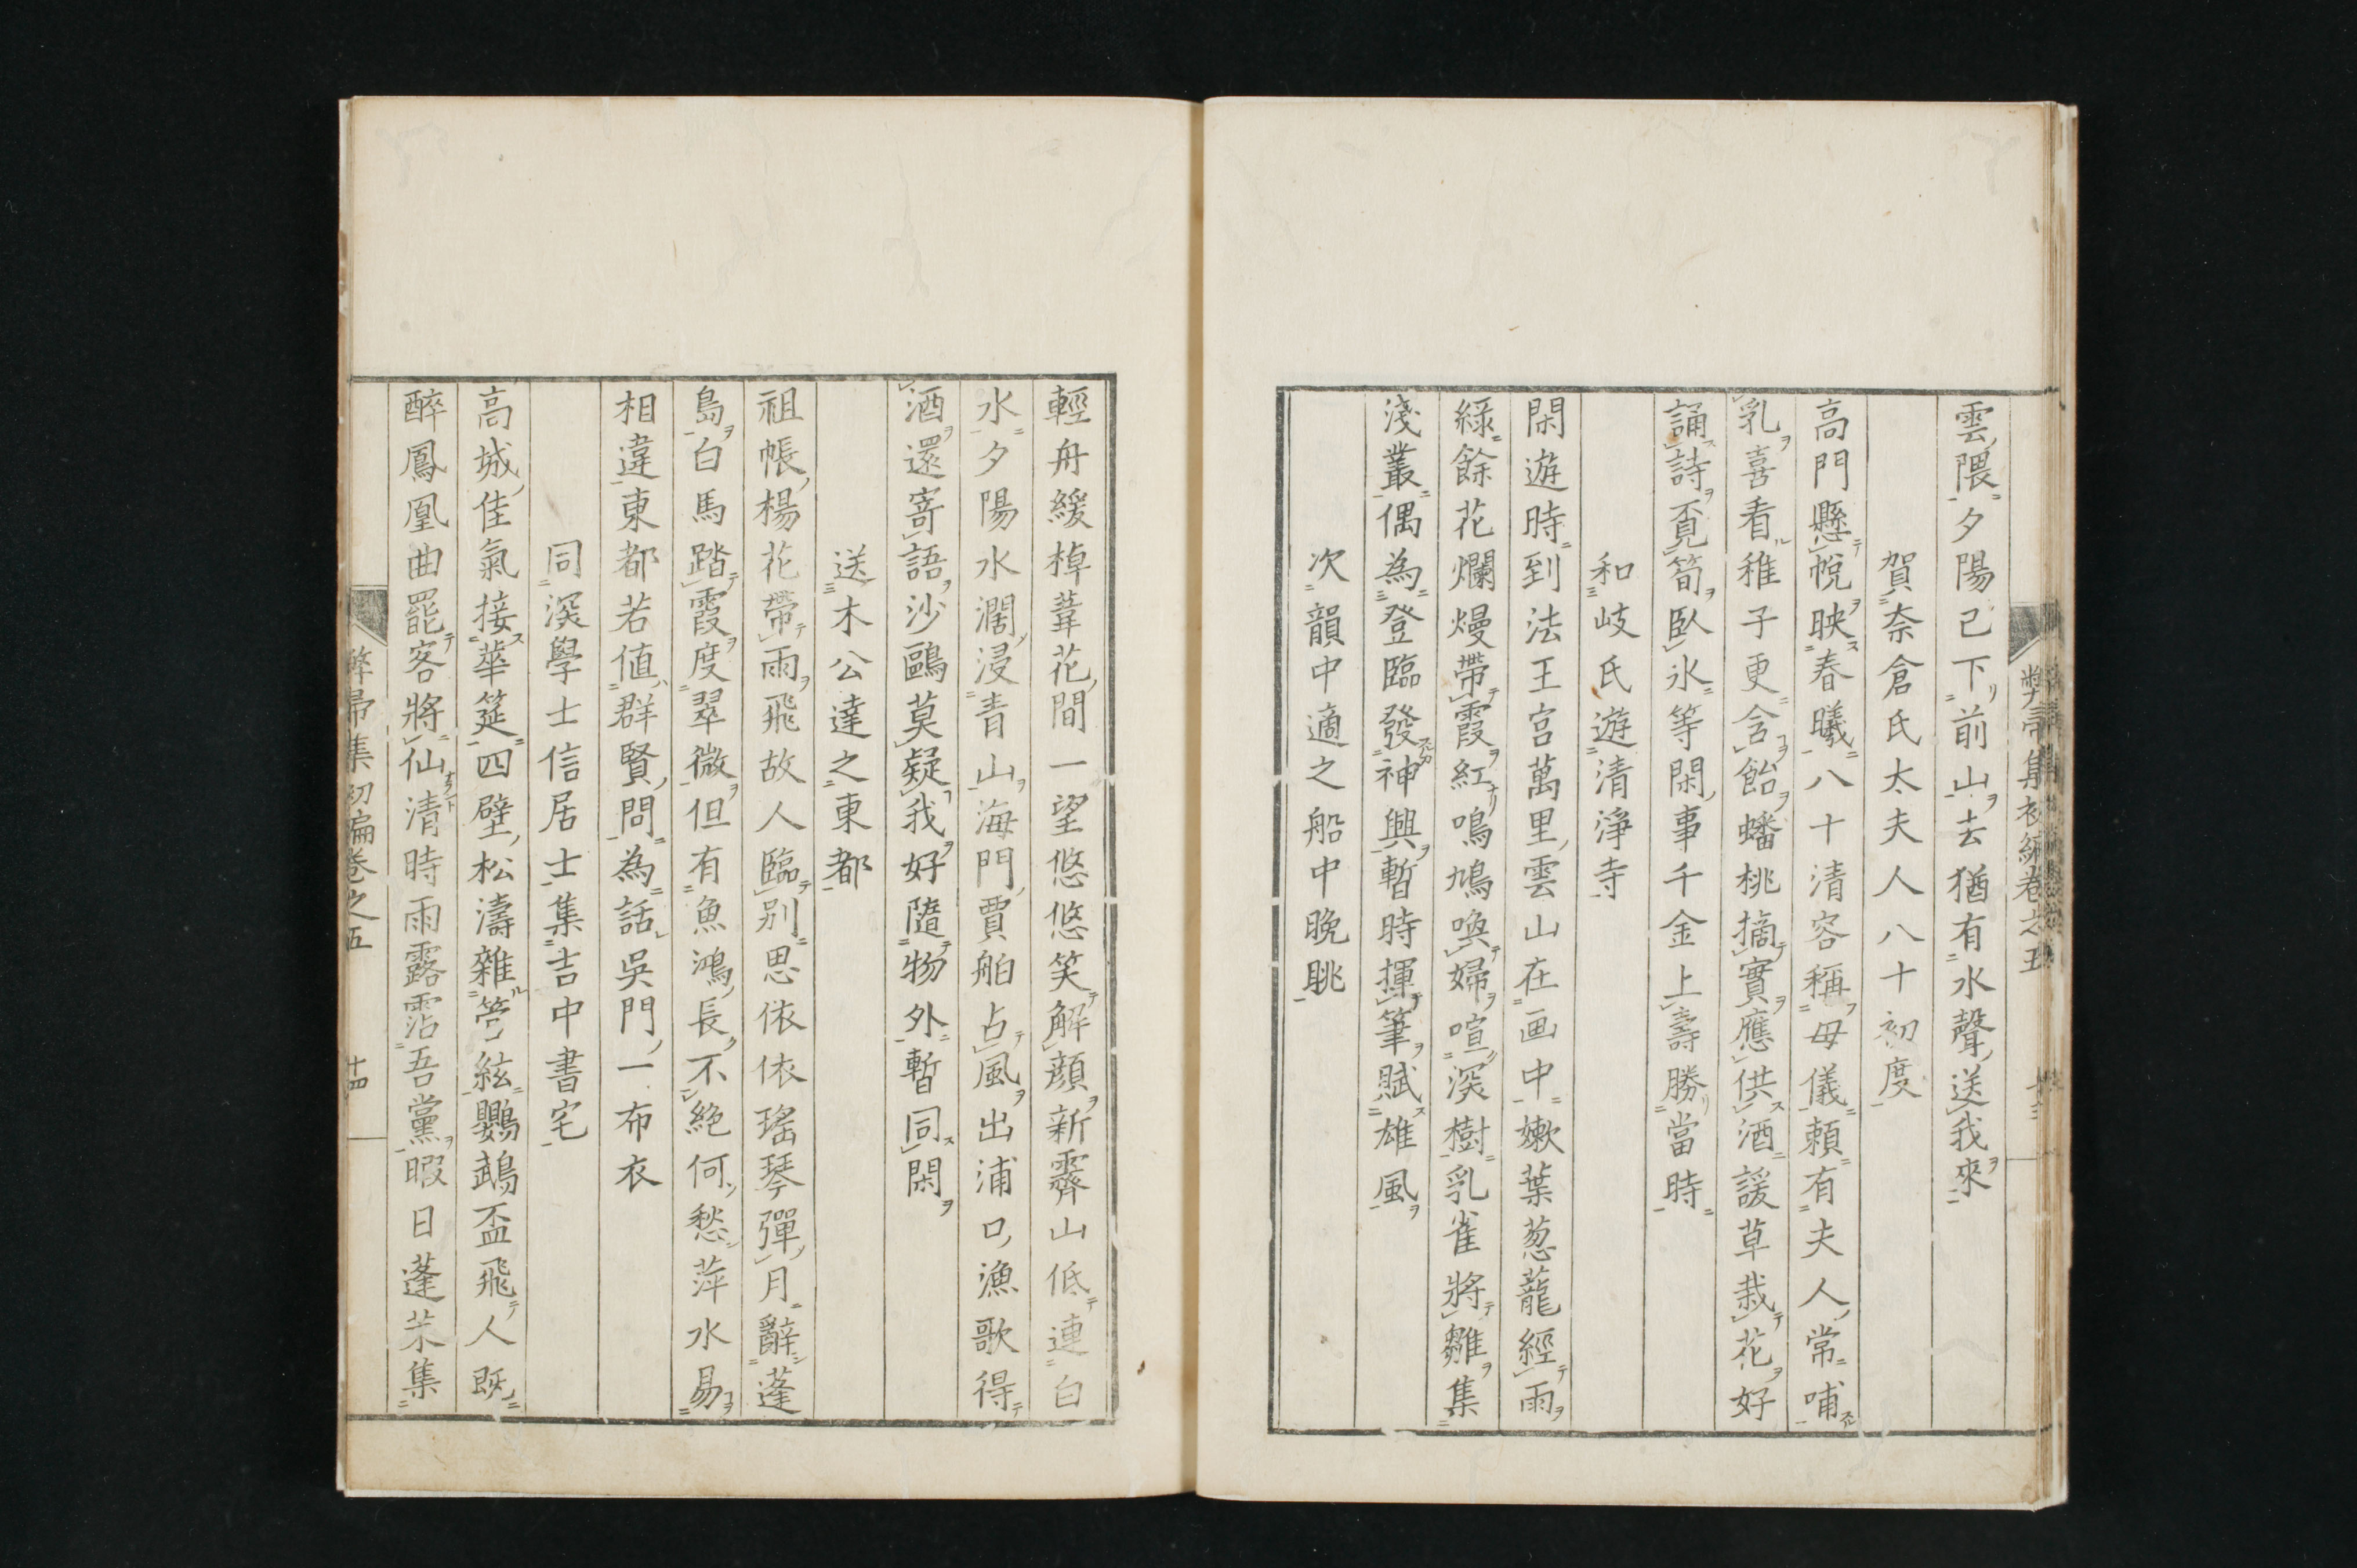 雲隈夕陽已下前山去猶有水聲送我來
賀奈倉氏太夫人八十初度
高門懸帨映春曦八十清容稱母儀頼有夫人常哺
乳喜看稚子更含飴蟠桃摘實應供酒諼草栽花好
誦詩覓筍臥氷等閑事千金上壽勝當時
和岐氏遊清淨寺
閑遊時到法王宮萬里雲山在画中嫩葉葱蘢經雨
綠餘花爛熳帶霞紅鳴鳩喚婦喧深樹乳雀將雛集
淺叢偶為登臨發神興暫時揮筆賦雄風
次韻中適之船中晚眺
輕舟緩棹葦花間一望悠悠笑解顔新霽山低連白
水夕陽水濶浸青山海門賈舶占風出浦口漁歌得
酒還寄語沙鷗莫疑我好隨物外暫同閑
送木公達之東都
祖帳楊花帶雨飛故人臨別思依依瑤琴彈月辭蓬
島白馬踏霞度翠微但有魚鴻長不絶何愁萍水易
相違東都若値群賢問為話吳門一布衣
同深學士信居士集吉中書宅
高城佳氣接華筵四壁松濤雜管絃鸚鵡盃飛人既
醉鳳凰曲罷客將仙清時雨露霑吾黨暇日蓬茅集
弊帚集初編卷之五 十四